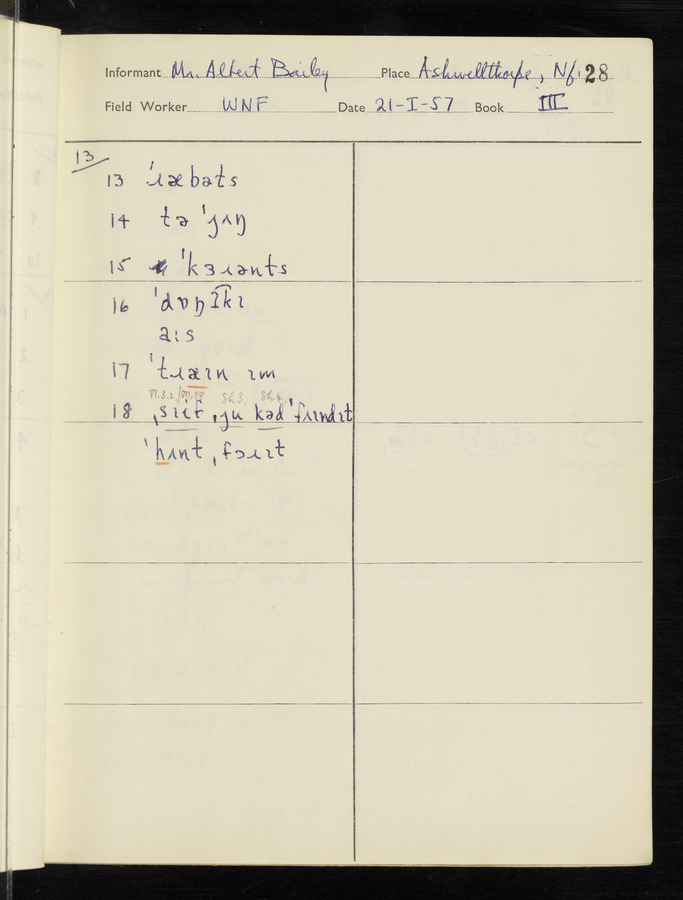 Informant Mr. Albert Bailey Place Ashwellthorpe, Nf. 28
Field Worker WNF Date 21-I-57 Book III
13
13 ˈɹæbəts
14 tə ˈjʌŋ
15 ˈkɜɹənts
16 ˈdɒŋɪkɪ
a:s
17 ˈtɹæɪn ɪm
VI.3.2./VII. Sh3. Sh4.
18 ˌsɪif ˌjʉ kəd ˈfɪɪndɪt
ˈhʌnt ˌfɔɹɪt